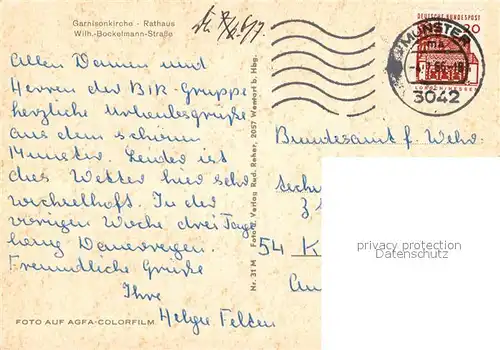 Garnisonkirche · Rathaus
Wilh.-Bockelmann-Straße
Allen Damen und
Herren der BIR-Gruppe
herzliche Urlaubsgrüße
aus dem schönen
Munster. Leider ist
das Wetter hier sehr
wechselhaft. In der
vorigen Woche drei Tage
lang Dauerregen.
Freundliche Grüße
Ihre
Helga Felten
FOTO AUF AGFA-COLORFILM
Nr. 31 M Foto u. Verlag Rud. Reher, 2057 Wentorf b. Hbg.
DEUTSCHE BUNDESPOST
20
LORSCH/HESSEN
MUNSTER
3042
Bundesamt f. Wehr
54 K
privacy protection
Datenschutz